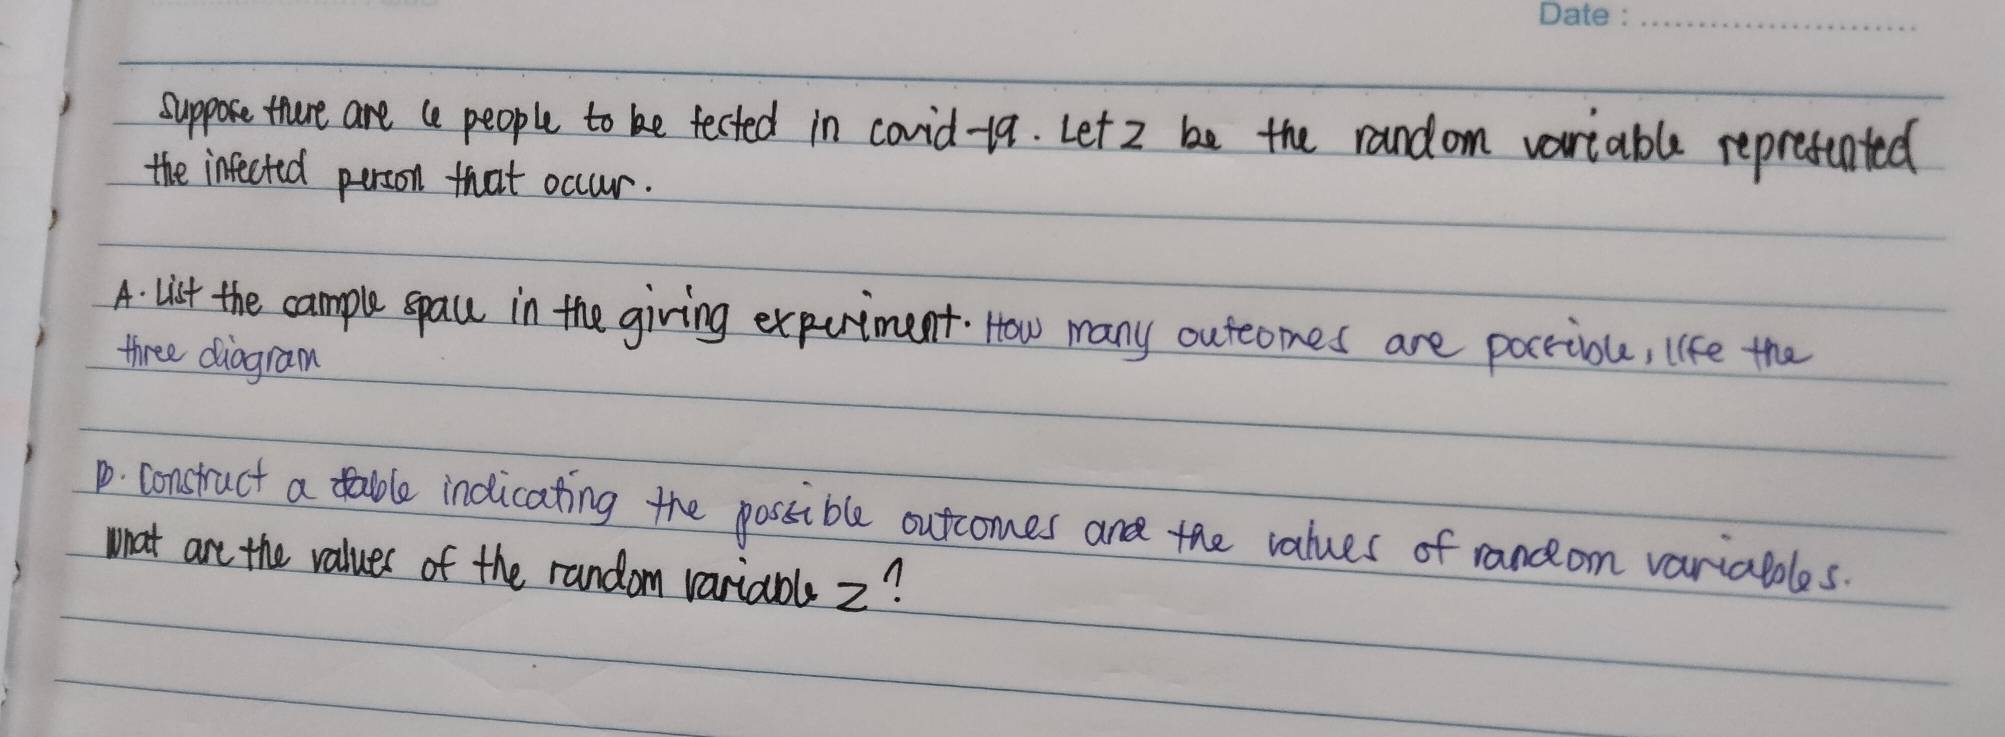 Date :
Suppose there are people to be tested in covid-19. Let Z be the random variable represented
the infected person that occur.
A. List the sample space in the giving experiment. How many outcomes are possible, the
three diagram
B. Construct a table indicating the possible outcomes and the values of random variables.
what are the values of the random variable Z?